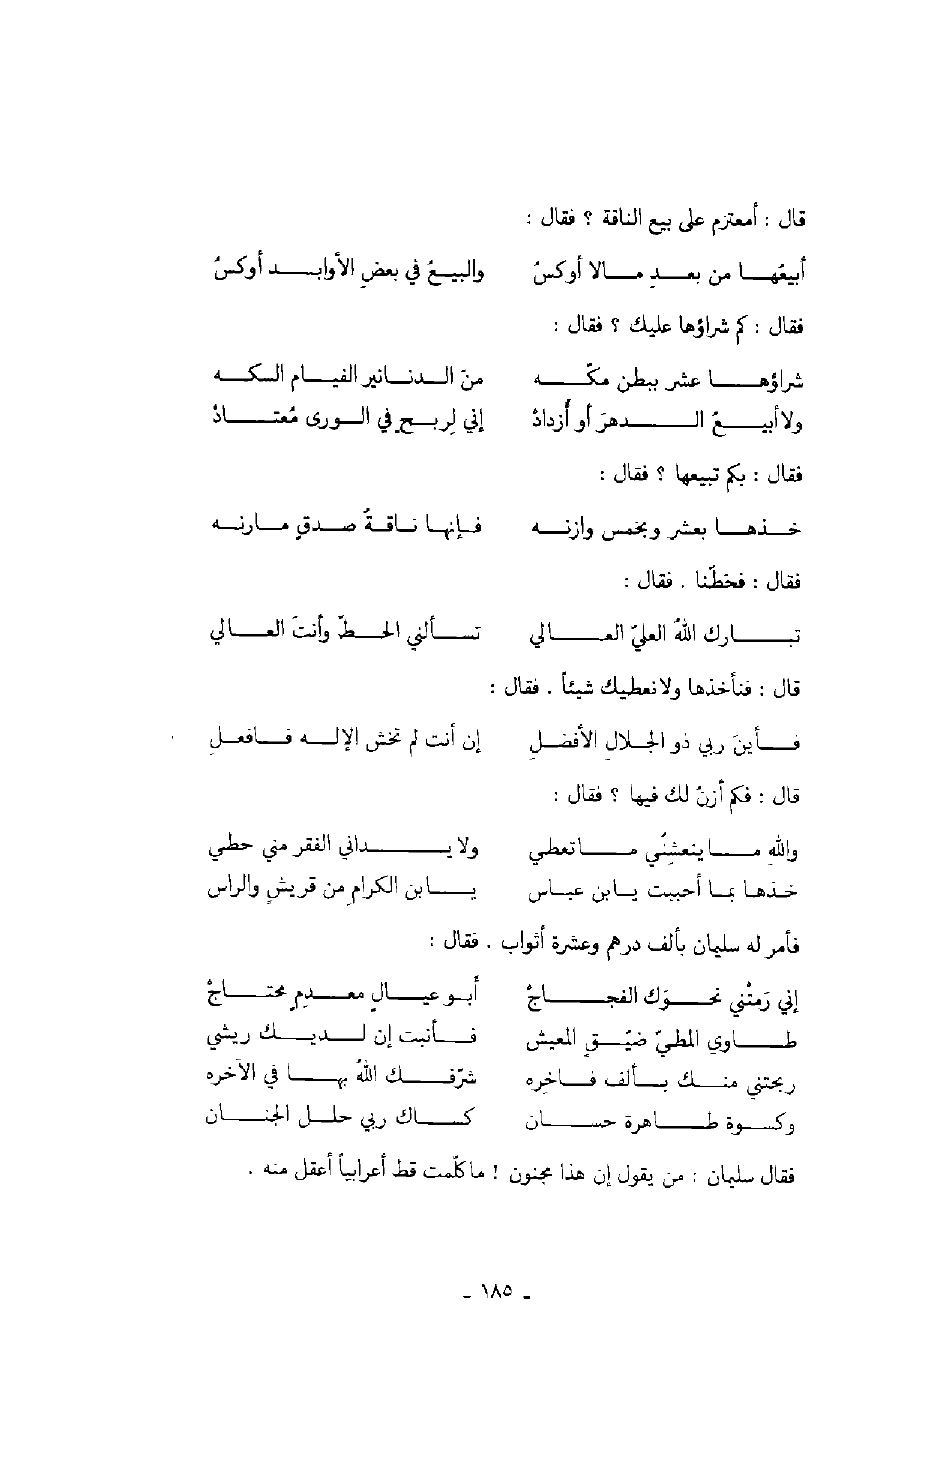 قال : أمعتزم على بيع الناقة ؟ فقال :
أبيعُهـا من بعـدِ مـالا أوكسُ والبيـعُ في بعضِ الأوابـد أوكسُ
فقال : كم شراؤها عليك ؟ فقال :
شراؤهـا عشر ببطن مكّـه منَ الـدنـانير القيـام السكـه
ولا أبيـعُ الـدهرَ أو أزدادُ إني لِربـح في الـورى مُعتـادُ
فقال : بكم تبيعها ؟ فقال :
خـذهـا بعشر وبخمس وازنـه فـإنهـا نـاقـةُ صـدقٍ مـارنـه
فقال : فحطّنا . فقال :
تبـارك اللهُ العليّ العـالي تسـألني الحـطّ وأنتَ العـالي
قال : فنأخذها ولا نعطيك شيئاً . فقال :
فـأينَ ربي ذو الجـلالِ الأفضـلِ إن أنت لم تخش الإلـه فـافعـلِ
قال : فكم أزنُ لك فيها ؟ فقال :
واللهِ مـا ينعشُني مـا تعطي ولا يـداني الفقر مني حطي
خـذهـا بمـا أحببت يـابن عبـاس يـابن الكرامِ من قريشٍ والراس
فأمر له سليمان بألف درهم وعشرة أثواب . فقال :
إني رَمتْني نحـوَك الفجـاجُ أبـو عيـالٍ معـدم محتـاجُ
طـاوي المطيّ ضيّـقِ المعيش فـأنبت إن لـديـك ريشي
ربحتني منـك بـألف فـاخره شرّفـك اللهُ بهـا في الآخره
وكسـوة طـاهرة حسـان كسـاك ربي حلـل الجنـان
فقال سليمان : من يقول إن هذا مجنون ! ما كلّمت قط أعرابياً أعقل منه .
ـ ١٨٥ ـ